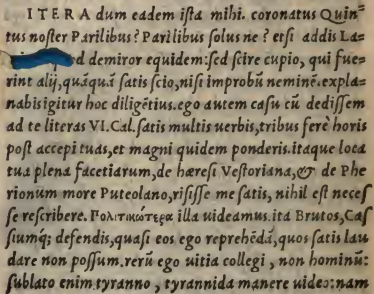 ITERA dum eadem iſta mihi. coronatus Quin=
tus noſter Parilibus? Parilibus ſolus ne? etſi addis La=
d demiror equidem:ſed ſcire cupio, qui fue=
rint alij,quãquã ſatis ſcio,niſi improbũ neminẽ.expla=
nabis igitur hoc diligẽtius.ego autem caſu cũ dediſſem
ad te literas VI.Cal.ſatis multis uerbis,tribus ferè horis
poſt accepi tuas,et magni quidem ponderis.itaque loca
tua plena facetiarum,de hæreſi Veſtoriana,& de Phe
rionum more Puteolano,riſiſſe me ſatis, nihil eſt neceſ
ſe reſcribere. Πολιτικώτερα illa uideamus.ita Brutos,Caſ
ſiumq; defendis,quaſi eos ego reprehẽdã,quos ſatis lau
dare non poſſum.rerũ ego uitia collegi , non hominũ:
ſublato enim tyranno , tyrannida manere uideo:nam